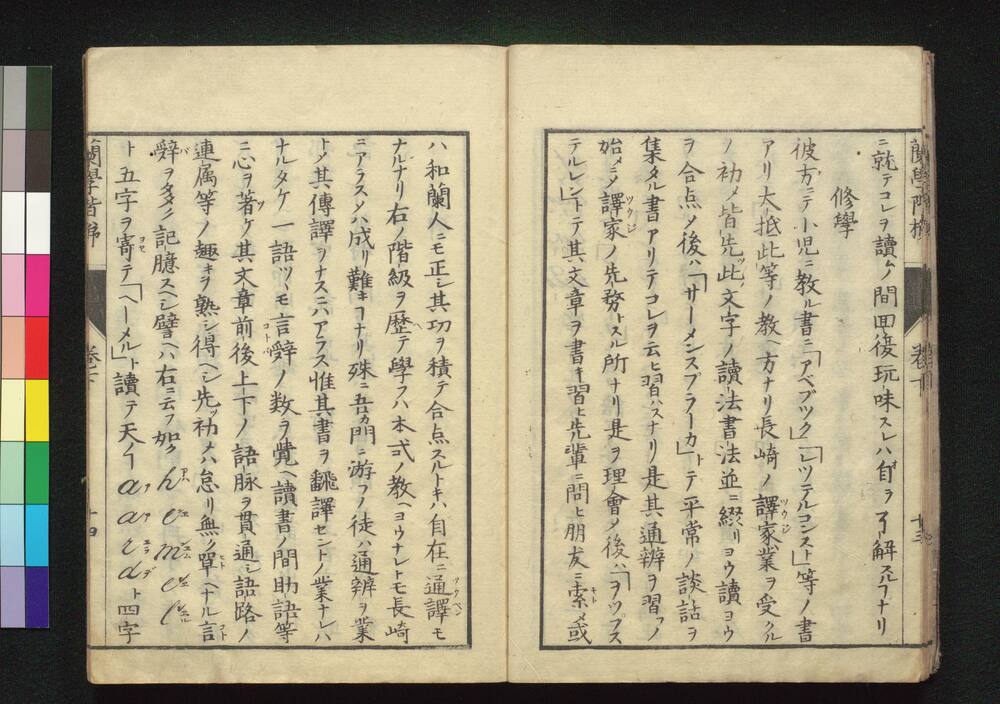 蘭學階梯
巻下
十三
ニ就テコレヲ讀ムノ間回復玩味スレハ自ラ了解スルヿナリ
修學
彼方ニテ小児ニ教ル書ニ「アベブック」「レッテルコンスト」等ノ書
アリ大抵此等ノ教ヘ方ナリ長崎ノ譯家業ヲ受クル
ノ初メ皆先此文字ノ讀法書法並ニ綴リヨウ讀ヨウ
ヲ合点ノ後ハ「サーメンスプラーカ」トテ平常ノ談話ヲ
集タル書アリテコレヲ云ヒ習ハスナリ是其通辨ヲ習フノ
始メニメ譯家ノ先務トスル所ナリ是ヲ理會メ後ハ「ヲップス
テルレン」トテ其文章ヲ書キ習ヒ先輩ニ問ヒ朋友ニ索メ或
ハ和蘭人ニモ正シ其功ヲ積テ合点スルトキハ自在ニ通譯モ
ナルナリ右ノ階級ヲ歴テ學フハ本式ノ教ヘヨウナレトモ長崎
ニアラスメハ成リ難キヿナリ殊ニ吾カ門ニ游フノ徒ハ通辨ヲ業
トメ其傳譯ヲナスニハアラス惟其書ヲ飜譯セントノ業ナレハ
ナルタケ一語ツヽモ言辭ノ数ヲ覺ヘ讀書ノ間助語等
ニ心ヲ著ケ其文章前後上下ノ語脉ヲ貫通シ語路ノ
連属等ノ趣キヲ熟シ得ヘシ先ッ初メハ怠リ無ク單ヘナル言
辭ヲ多ク記臆スヘシ譬ヘハ右ニ云フ如ク h e m e l
ト五字ヲ寄テ「ヘーメル」ト讀テ天ノ a a r d ト四字
蘭學階梯
巻下
十四